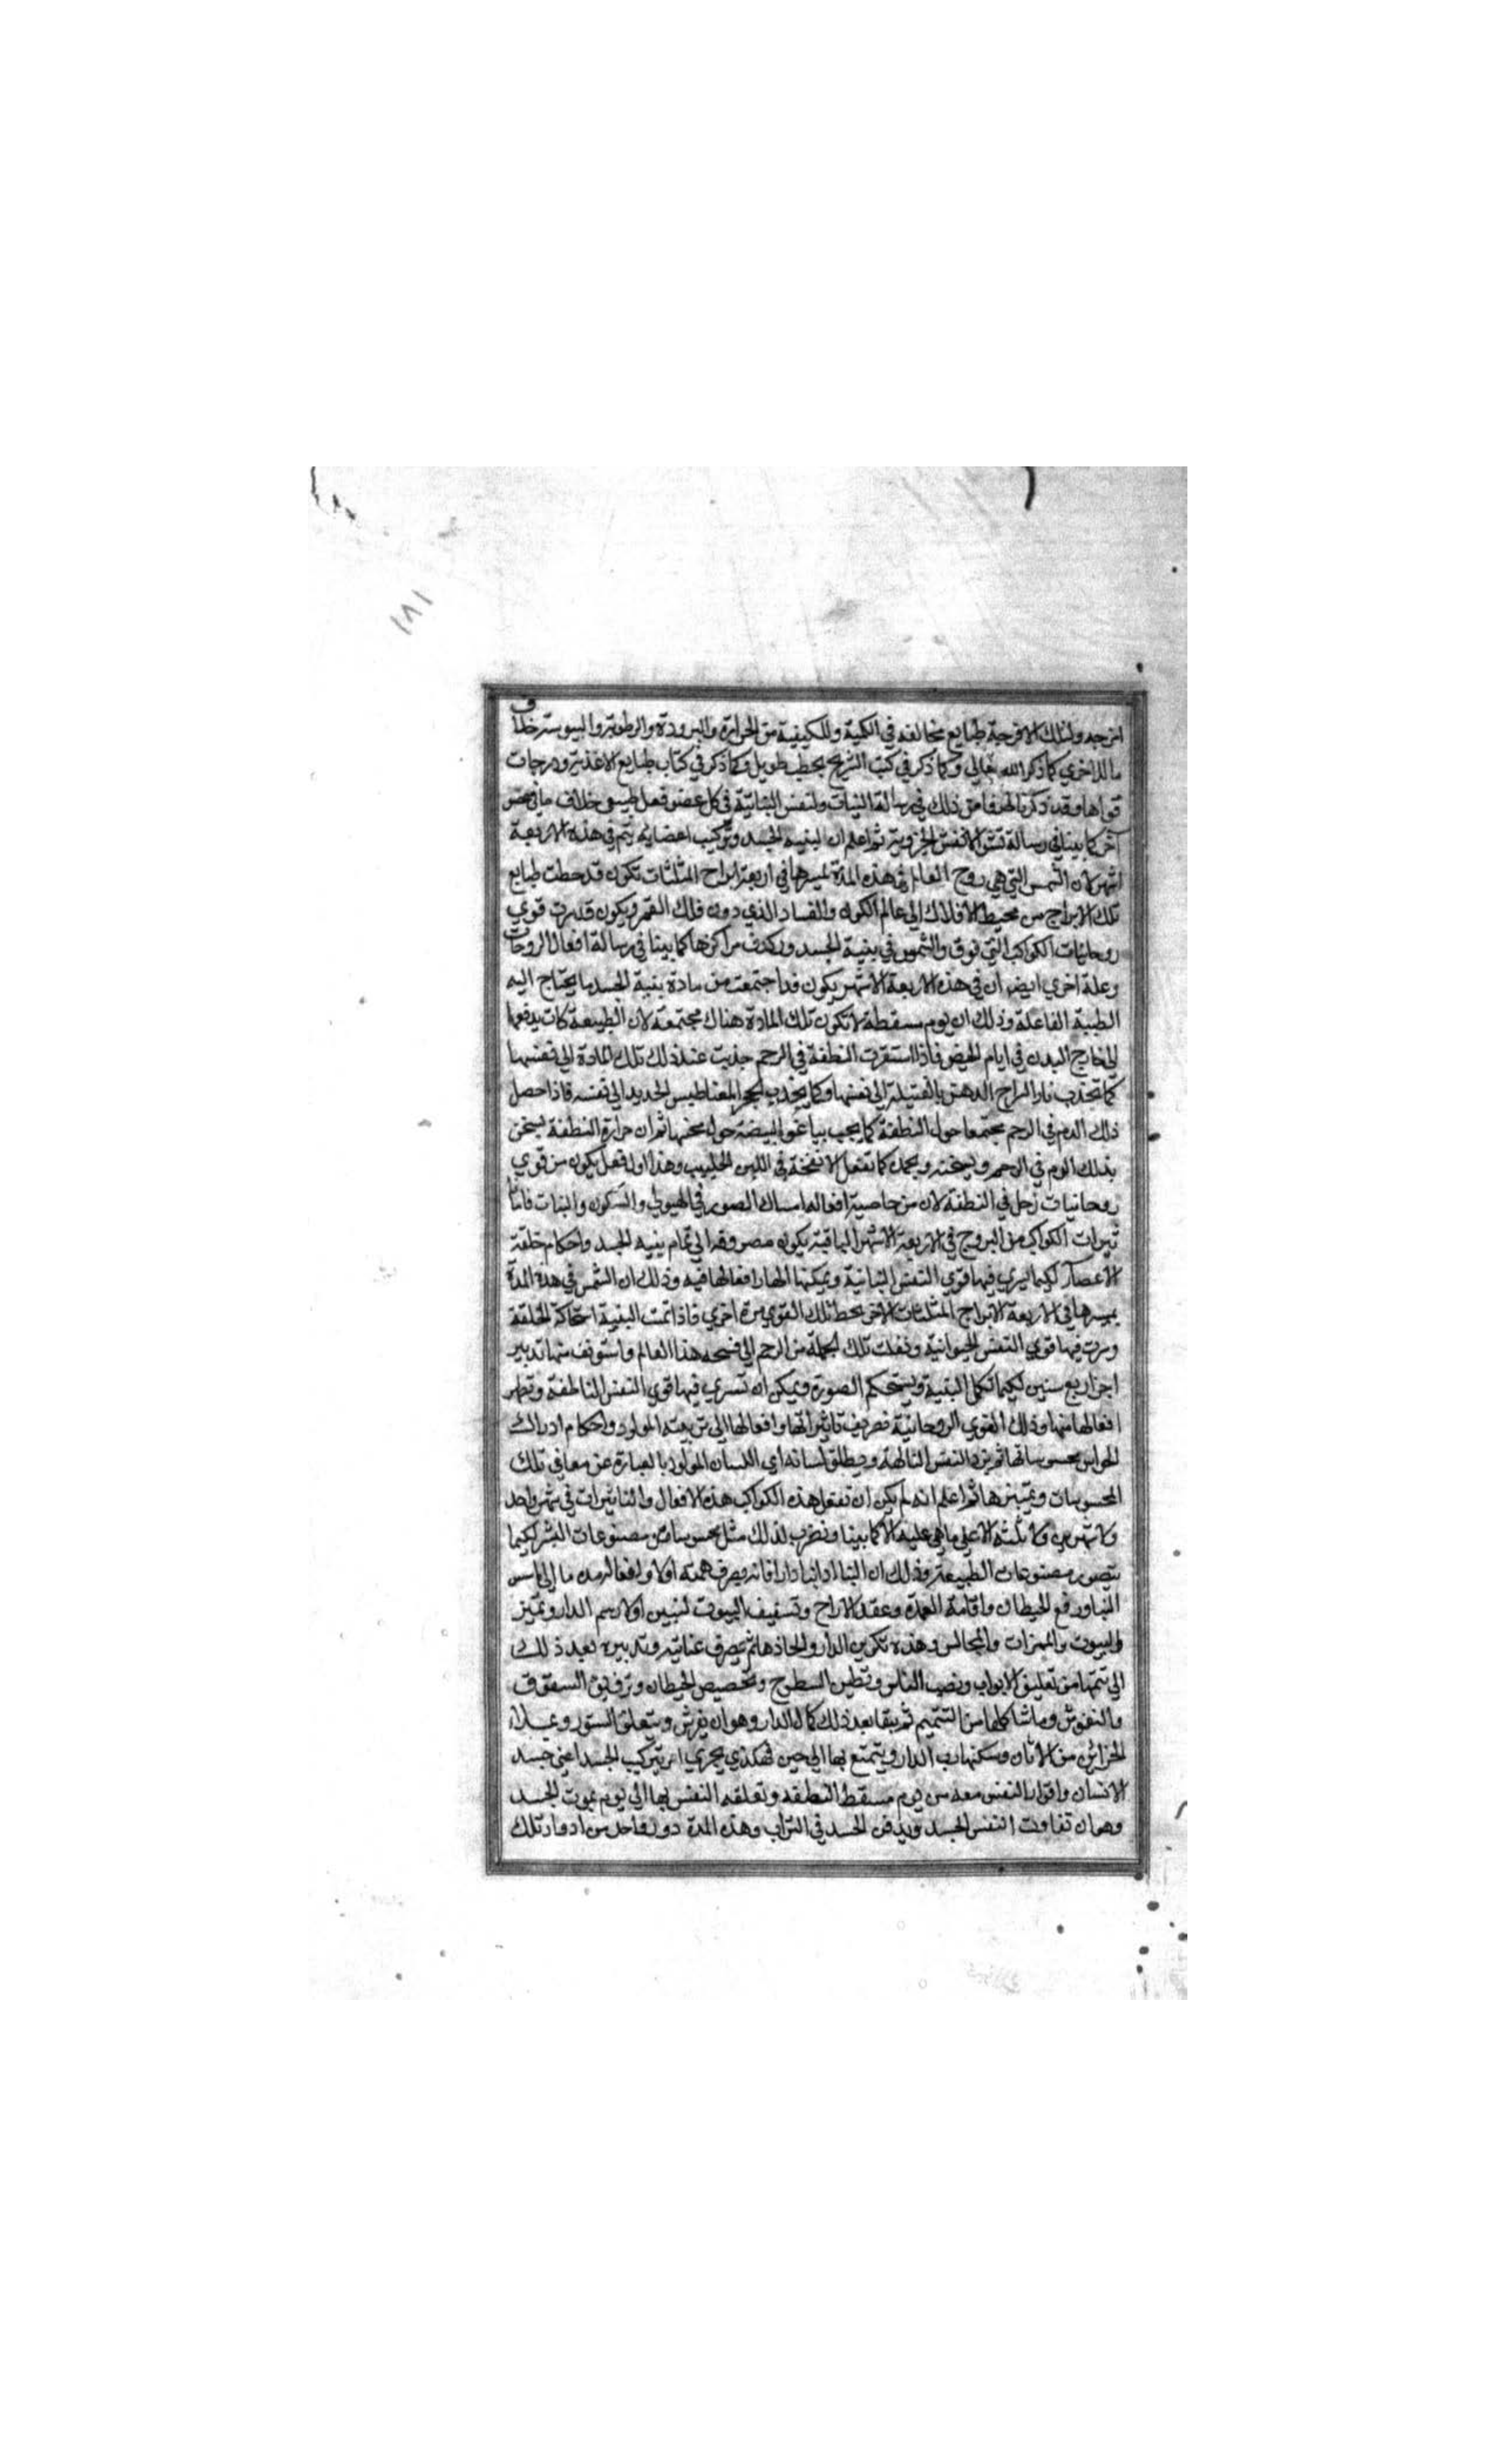 ١٧١
امزجه ولتلك الامزجة طبايع مخالفه في الكمية والكيفية من الحرارة والبرودة والرطوبة واليبوسة خلاف
ما للاخري كما ذكر الله تعالي وكما ذكر في كتب التشريح بخطب طويل وكما ذكر في كتاب طبايع الاغذية ودرجات
قواها وقد ذكرنا طرفا من ذلك في رسالة النبات ولنفس النباتية في كل عضو فعل طبيعي خلاف ما في عضو
آخر كما بينا في رسالة نشو الانفس الجزوية ثم اعلم ان لبنيه الجسد وتركيب اعضايه يتم في هذه الاربعة
اشهر لان الشمس التي هي روح العالم في هذه المدة لمسيرها في اربعة ابراج المثلثات تكون قد حطت طبايع
تلك الابراج من محيط الافلاك الي عالم الكون والفساد الذي دون فلك القمر ويكون قد سرت قوي
روحانيات الكواكب التي فوق والشمس في بنية الجسد وركدت مراكزها كما بينا في رسالة افعال الروحانيات
وعلة اخري ايضا ان في هذه الاربعة الاشهر يكون قد اجتمعت من مادة بنية الجسد ما يحتاج اليه
الطبيه الفاعلة وذلك ان يوم مسقطه لا تكون تلك المادة هناك مجتمعة لان الطبيعة كانت يدفعها
الي خارج البدن في ايام الحيض فاذا استقرت النطفة في الرحم جذبت عند ذلك تلك المادة الي نفسها
كما تجذب نار السراج الدهن بالفتيلة الي نفسها وكما يجذب الحجر المغناطيس الحديد الي نفسه فاذا حصل
ذلك الدم في الرحم مجتمعا حول النطفة كما يجب بياض البيضة حول مخها ثم ان حرارة النطفة يسخن
بذلك الدم في الرحم ويسخنه ويجمد كما تفعل الانفخة في اللبن الحليب وهذا اول فعل يكون من قوي
روحانيات زحل في النطفة لان من خاصية افعاله امساك الصور في الهيولي والسكون والنبات فاما تا
ثيرات الكواكب من البروج في الاربعة الاشهر الباقية يكون مصروفه الي تمام بنيه الجسد واحكام خلقة
الاعضآء لكيما يسري فيها قوي النفس النباتية ويمكنها اظهار افعالها فيه وذلك ان الشمس في هذه المدة
بمسيرها في الاربعة الابراج المثلثات الاخر يحط تلك القوي مرة اخري فاذا تمت البنية استحاكة الخلقة
وسرت فيها قوي النفس الحيوانية ونقلت تلك الجملة من الرحم الي فسحه هذا العالم واستونف منها تدبير
اخر اربع سنين لكيما تكمل البنية ويستحكم الصورة ويمكن ان تسري فيها قوي النفس الناطقة وتظهر
افعالها منها وذلك القوي الروحانية تصريف تاثيراتها وافعالها الي تربيته المولود واحكام ادراك
الحواس محسوساتها ثم يرد النفس الناطقة ويطلق لسانه اي اللسان المولود بالعبارة عن معاني تلك
المحسوسات وتمييزها ثم اعلم انه لم يكن ان تفعل هذه الكواكب هذه الافعال والتاثيرات في شهر واحد
ولا شهرين ولا ثلثة الا علي ما هي عليه الا كما بينا ونضرب لذلك مثل محسوسا من مصنوعات البشر لكيما
يتصور مصنوعات الطبيعة وذلك ان البنا اذا بنا دارا فانه يصرف همته اولا وافعاله مده ما الي اسس
البنا ورفع الحيطان واقامة العمدة وعقد الازاج وتسقيف البيوت لتبين اولا رسم الدار وتميز
والبيوت والممرات والمجالس وهذه تكوين الدار واتخاذها ثم يصرف عنايته وتدبيره بعد ذلك
الي تتمتها من تعليق الابواب ونصب الناس وتطين السطوح وتجصيص الحيطان وتزفيق السقوف
والنقوش وما شاكلها من التتميم ثم يبقا بعد ذلك كمال الدار وهو ان يفرش ويتعلق الستور ويملاء
الخزاين من الاثاث وسكنها رب الدار ويتمتع بها الي حين فهكذي يجري امر تركيب الجسد اعني جسد
الانسان واقوار النفس معه من يوم مسقط النطفه وتعلقه النفس بها الي يوم يموت الجسد
وهو ان تفاوت النفس الجسد ويدفن الجسد في التراب وهذه المدة دور واحد من ادوار تلك